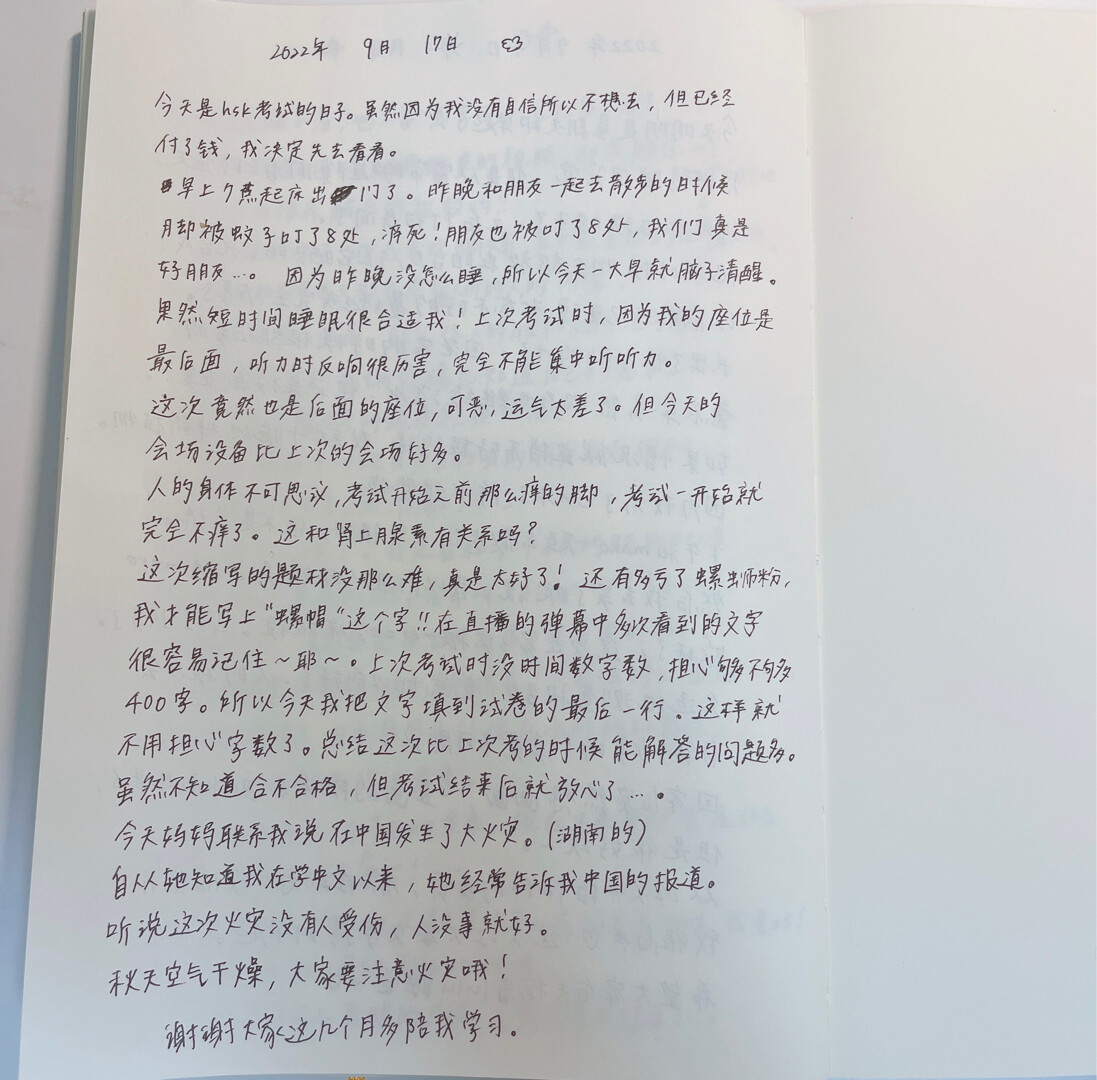 2022年 9月 17日 ε3
今天是hsk考试的日子。虽然因为我没有自信所以不想去，但已经
付了钱，我决定先去看看。
早上7点起床出门了。昨晚和朋友一起去散步的时候
脚被蚊子叮了8处，痒死！朋友也被叮了8处，我们真是
好朋友…。 因为昨晚没怎么睡，所以今天一大早就脑子清醒。
果然短时间睡眠很合适我！上次考试时，因为我的座位是
最后面，听力时反响很历害，完全不能集中听听力。
这次竟然也是后面的座位，可恶，运气太差了。但今天的
会场设备比上次的会场好多。
人的身体不可思议，考试开始之前那么痒的脚，考试一开始就
完全不痒了。这和肾上腺素有关系吗？
这次缩写的题材没那么难，真是太好了！还有多亏了螺蛳粉，
我才能写上"螺帽"这个字!!在直播的弹幕中多次看到的文字
很容易记住～耶～。上次考试时没时间数字数，担心够不够
400字。所以今天我把文字填到试卷的最后一行。这样就
不用担心字数了。总结这次比上次考的时候能解答的问题多。
虽然不知道合不合格，但考试结束后就放心了…。
今天妈妈联系我说在中国发生了大火灾。(湖南的)
自从她知道我在学中文以来，她经常告诉我中国的报道。
听说这次火灾没有人受伤，人没事就好。
秋天空气干燥，大家要注意火灾哦！
谢谢大家这几个月多陪我学习。